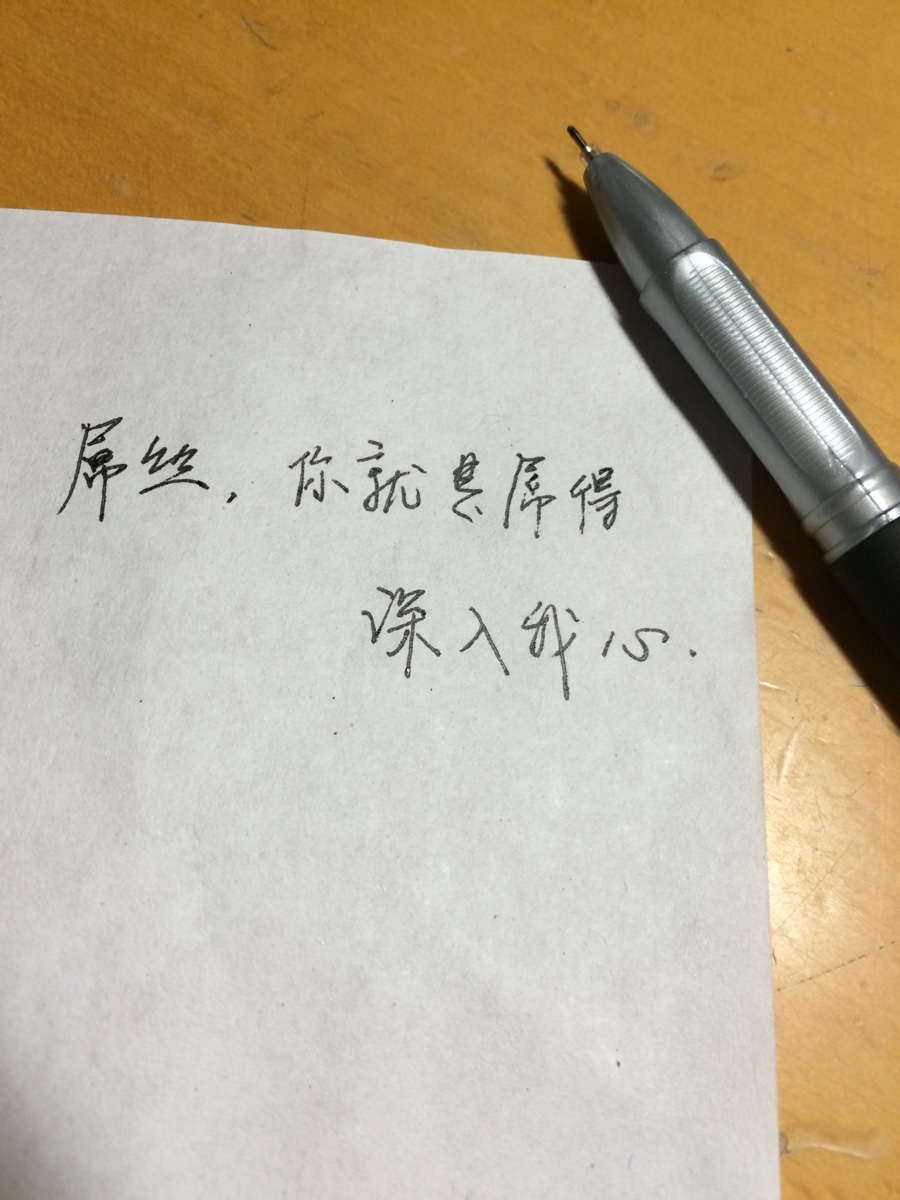 屌丝，你就是屌得
深入我心.